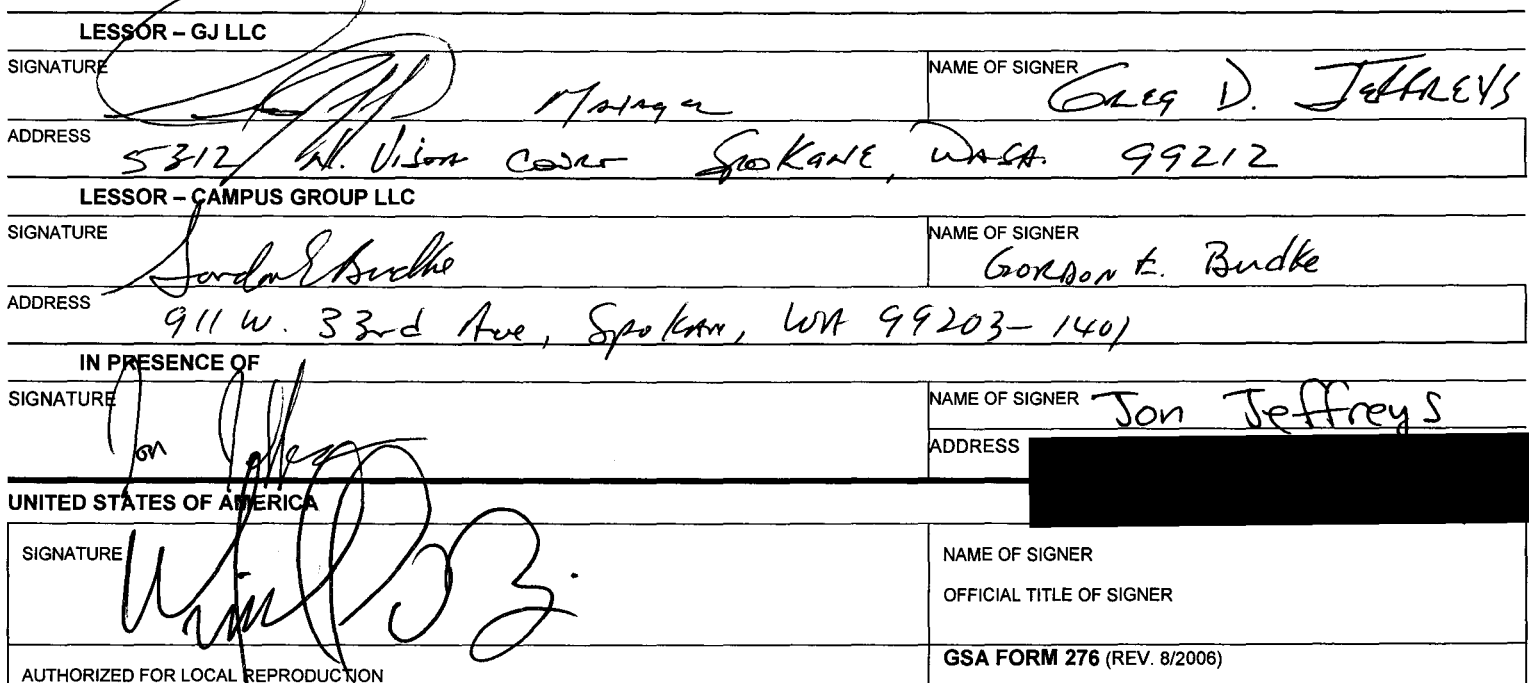 LESSOR – GJ LLC
SIGNATURE Manager NAME OF SIGNER Greg D. JEFFREYS
ADDRESS 5312 Court SPOKANE, WASH. 99212
LESSOR – CAMPUS GROUP LLC
SIGNATURE Gordon E Budke NAME OF SIGNER GORDON E. Budke
ADDRESS 911 W. 33rd Ave, Spokane, WA 99203-1401
IN PRESENCE OF
SIGNATURE Jon Jeffreys NAME OF SIGNER Jon Jeffreys
ADDRESS
UNITED STATES OF AMERICA
SIGNATURE NAME OF SIGNER
OFFICIAL TITLE OF SIGNER
AUTHORIZED FOR LOCAL REPRODUCTION GSA FORM 276 (REV. 8/2006)